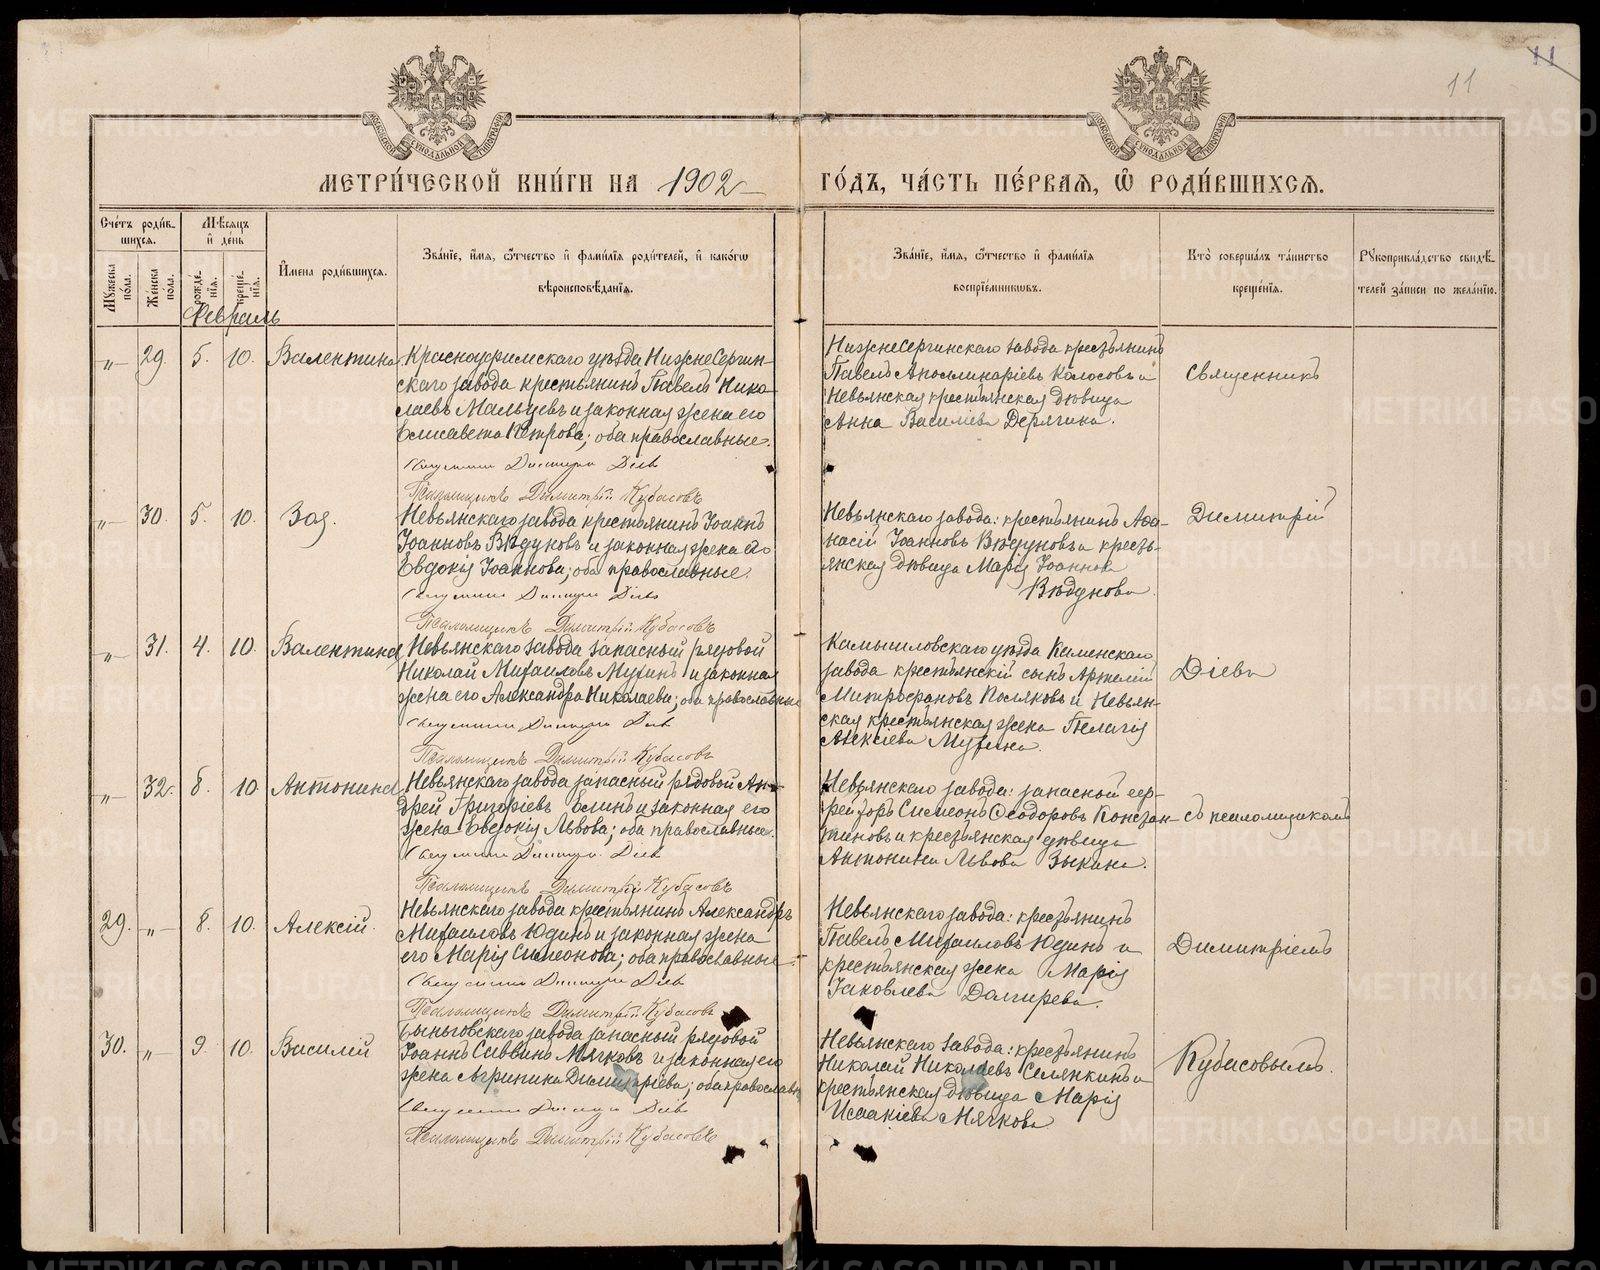 11
11
МОСКОВСКОЙ СѴНОДАЛЬНОЙ ТИПОГРАФІИ
МОСКОВСКОЙ СѴНОДАЛЬНОЙ ТИПОГРАФІИ
МЕТРИ́ЧЕСКОЙ КНИ́ГИ НА 1902 ГО́ДЪ, ЧА́СТЬ ПЕ́РВАЯ, Ѿ РОДИ́ВШИХСЯ.
Сче́тъ роди́в-
шихся.
Мꙋ́жеска по́ла.
Же́нска по́ла.
Мѣ́сяцъ
и҆ де́нь
рожде́нїя.
креще́нїя.
И҆мена роди́вшихся.
Зва́нїе, и҆́мя, ѻ҆́тчество и҆ фами́лїя роди́телей, и҆ како́гѡ
вѣроисповѣ́данїя.
Зва́нїе, и҆́мя, ѻ҆́тчество и҆ фами́лїя
воспрїе́мниковъ.
Кто̀ соверша́лъ та́инство
креще́нїя.
Рꙋкоприкла́дство свидѣ́-
телей за́писи по жела́нїю.
Февраль
"— 29. 5. 10. Валентина.
Красноуфимскаго уѣзда НижнеСергин-
скаго завода крестьянинъ Павелъ Нико-
лаевъ Мальцевъ и законная жена его
Елисавета Петрова; оба православные.
Димитрій Діевъ
Псаломщикъ Димитрій Кубасовъ
НижнеСергинскаго завода крестьянинъ
Павелъ Аполлинаріевъ Колосовъ и
Невьянская крестьянская дѣвица
Анна Василіева Дерягина.
Священникъ
"— 30. 5. 10. Зоя.
Невьянскаго завода крестьянинъ Іоаннъ
Іоанновъ Вѣдуновъ и законная жена его
Евдокія Іоаннова; оба православные.
Димитрій Діевъ
Псаломщикъ Димитрій Кубасовъ
Невьянскаго завода: крестьянинъ Аѳа-
насій Іоанновъ Вѣдуновъ и кресть-
янская дѣвица Марія Іоаннова
Вѣдунова.
Димитрій
"— 31. 4. 10. Валентина
Невьянскаго завода запасный рядовой
Николай Михаиловъ Мухинъ и законная
жена его Александра Николаева; оба православные
Димитрій Діевъ
Псаломщикъ Димитрій Кубасовъ
Камышловскаго уѣзда Каменскаго
завода крестьянскій сынъ Артемій
Митрофановъ Поляковъ и Невьян-
ская крестьянская жена Пелагія
Алексіева Мухина.
Діевъ
"— 32. 8. 10. Антонина
Невьянскаго завода запасный рядовой Ан-
дрей Григоріевъ Елинъ и законная его
жена Евдокія Львова; оба православные.
Димитрій Діевъ
Псаломщикъ Димитрій Кубасовъ
Невьянскаго завода: запасной еф-
рейторъ Симеонъ Ѳеодоровъ Констан-
тиновъ и крестьянская дѣвица
Антонина Львова Зыкина.
съ псаломщикомъ
29. "— 8. 10. Алексій.
Невьянскаго завода крестьянинъ Александръ
Михаиловъ Юдинъ и законная жена
его Марія Симеонова; оба православные.
Димитрій Діевъ
Псаломщикъ Димитрій Кубасовъ
Невьянскаго завода: крестьянинъ
Павелъ Михаиловъ Юдинъ и
крестьянская жена Марія
Іаковлева Долгирева.
Димитріемъ
30. "— 9. 10. Василій
Быньговскаго завода запасный рядовой
Іоаннъ Саввинъ Мягковъ и законная его
жена Агрипина Димитріева; оба православн
Димитрій Діевъ
Псаломщикъ Димитрій Кубасовъ
Невьянскаго завода: крестьянинъ
Николай Николаевъ Селянкинъ и
крестьянская дѣвица Марія
Исаакіева Мягкова
Кубасовымъ.
METRIKI.GASO-URAL.RU